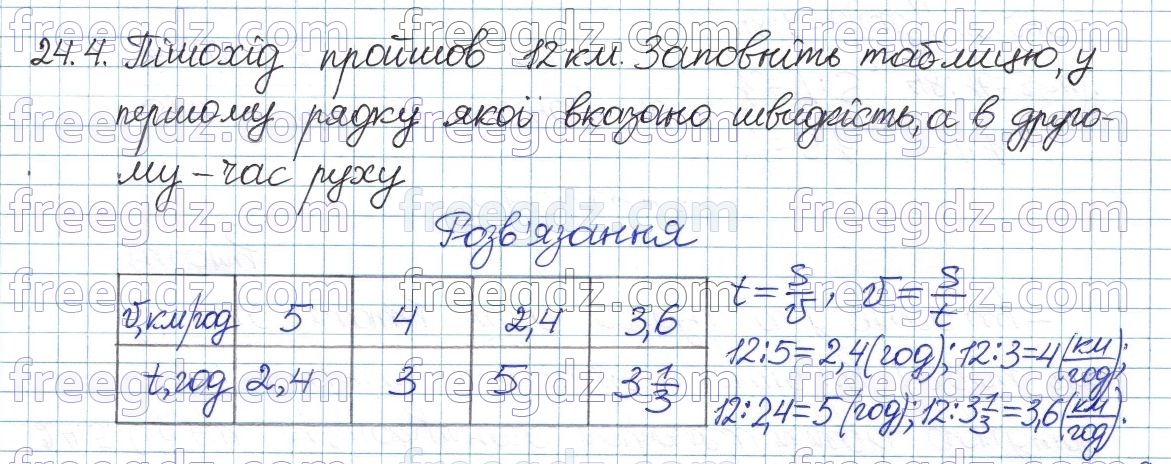 24.4. Пішохід пройшов 12 км. Заповніть таблицю, у
першому рядку якої вказано швидкість, а в друго-
му – час руху
Розв'язання
v, км/год 5 4 2,4 3,6
t, год 2,4 3 5 3 1/3
t = s/v, v = s/t
12:5=2,4(год); 12:3=4(км/год);
12:2,4=5(год); 12:3 1/3=3,6(км/год).
freegdz.com